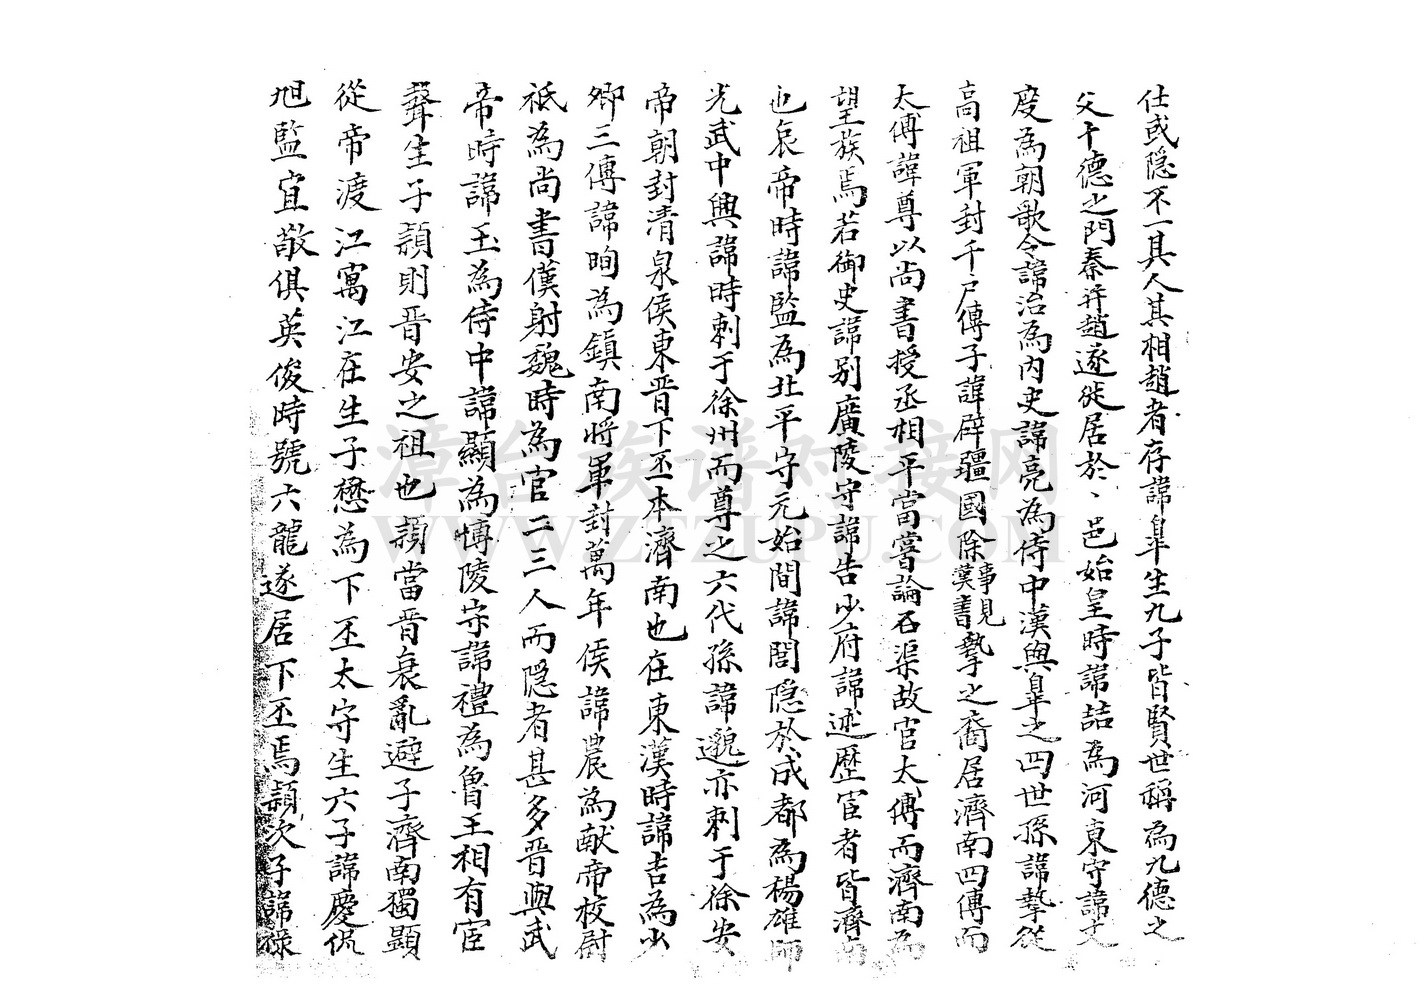 仕或隱不一其人其相趙者存諱皐生九子皆賢世稱為九德之
父十德之門秦并趙遂徙居於、邑始皇時諱喆為河東守諱文
度為朝歌令諱治為內史諱亮為侍中漢興皐之四世孫諱摯從
高祖軍封千戶傳子諱辟疆國除事見漢書摯之裔居濟南四傳而
太傅諱尊以尚書授丞相平當嘗論石渠故官太傅而濟南為
望族焉若御史諱别廣陵守諱告少府諱述歷宦者皆濟南
也哀帝時諱監為北平守元始間諱閭隱於成都為楊雄師
光武中興諱時刺于徐州而尊之六代孫諱邈亦刺于徐安
帝朝封清泉侯東晋下丕本濟南也在東漢時諱吉為少
卿三傳諱昫為鎮南將軍封萬年侯諱農為献帝校尉
祇為尚書僕射魏時為官二三人而隱者甚多晋興武
帝時諱玉為侍中諱顯為慱陵守諱禮為魯王相有宦
聲生子頴則晋安之祖也頴當晋衰亂避子濟南獨顯
從帝渡江寓江在生子懋為下丕太守生六子諱慶侃
旭監宜敬俱英俊時號六龍遂居下丕焉頴次子諱祿
漳台族谱对接网
WWW.ZTZUPU.COM